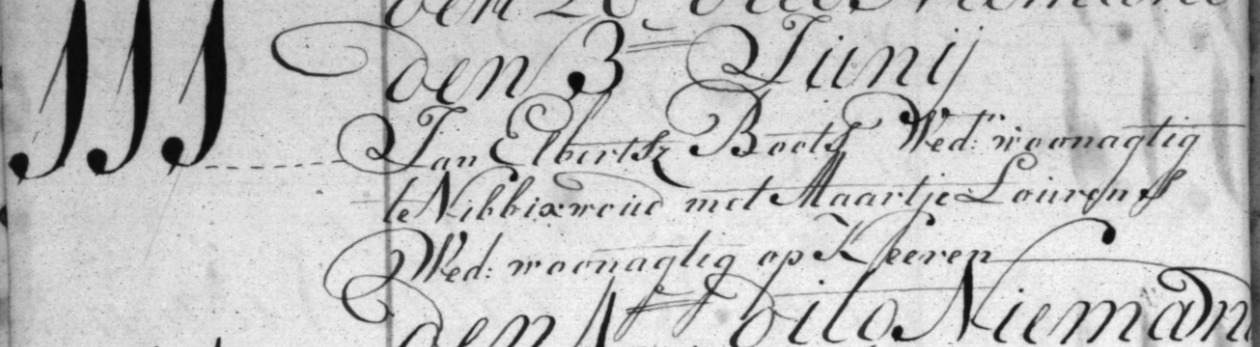 den 26 dito Niemand
den 3 Junij
III Jan Elbertsz Boots Wed:r woonagtig
te Nibbixwoud met Maartje Lourens
Wed: woonagtig op Keeren
den 1 dito Niemand